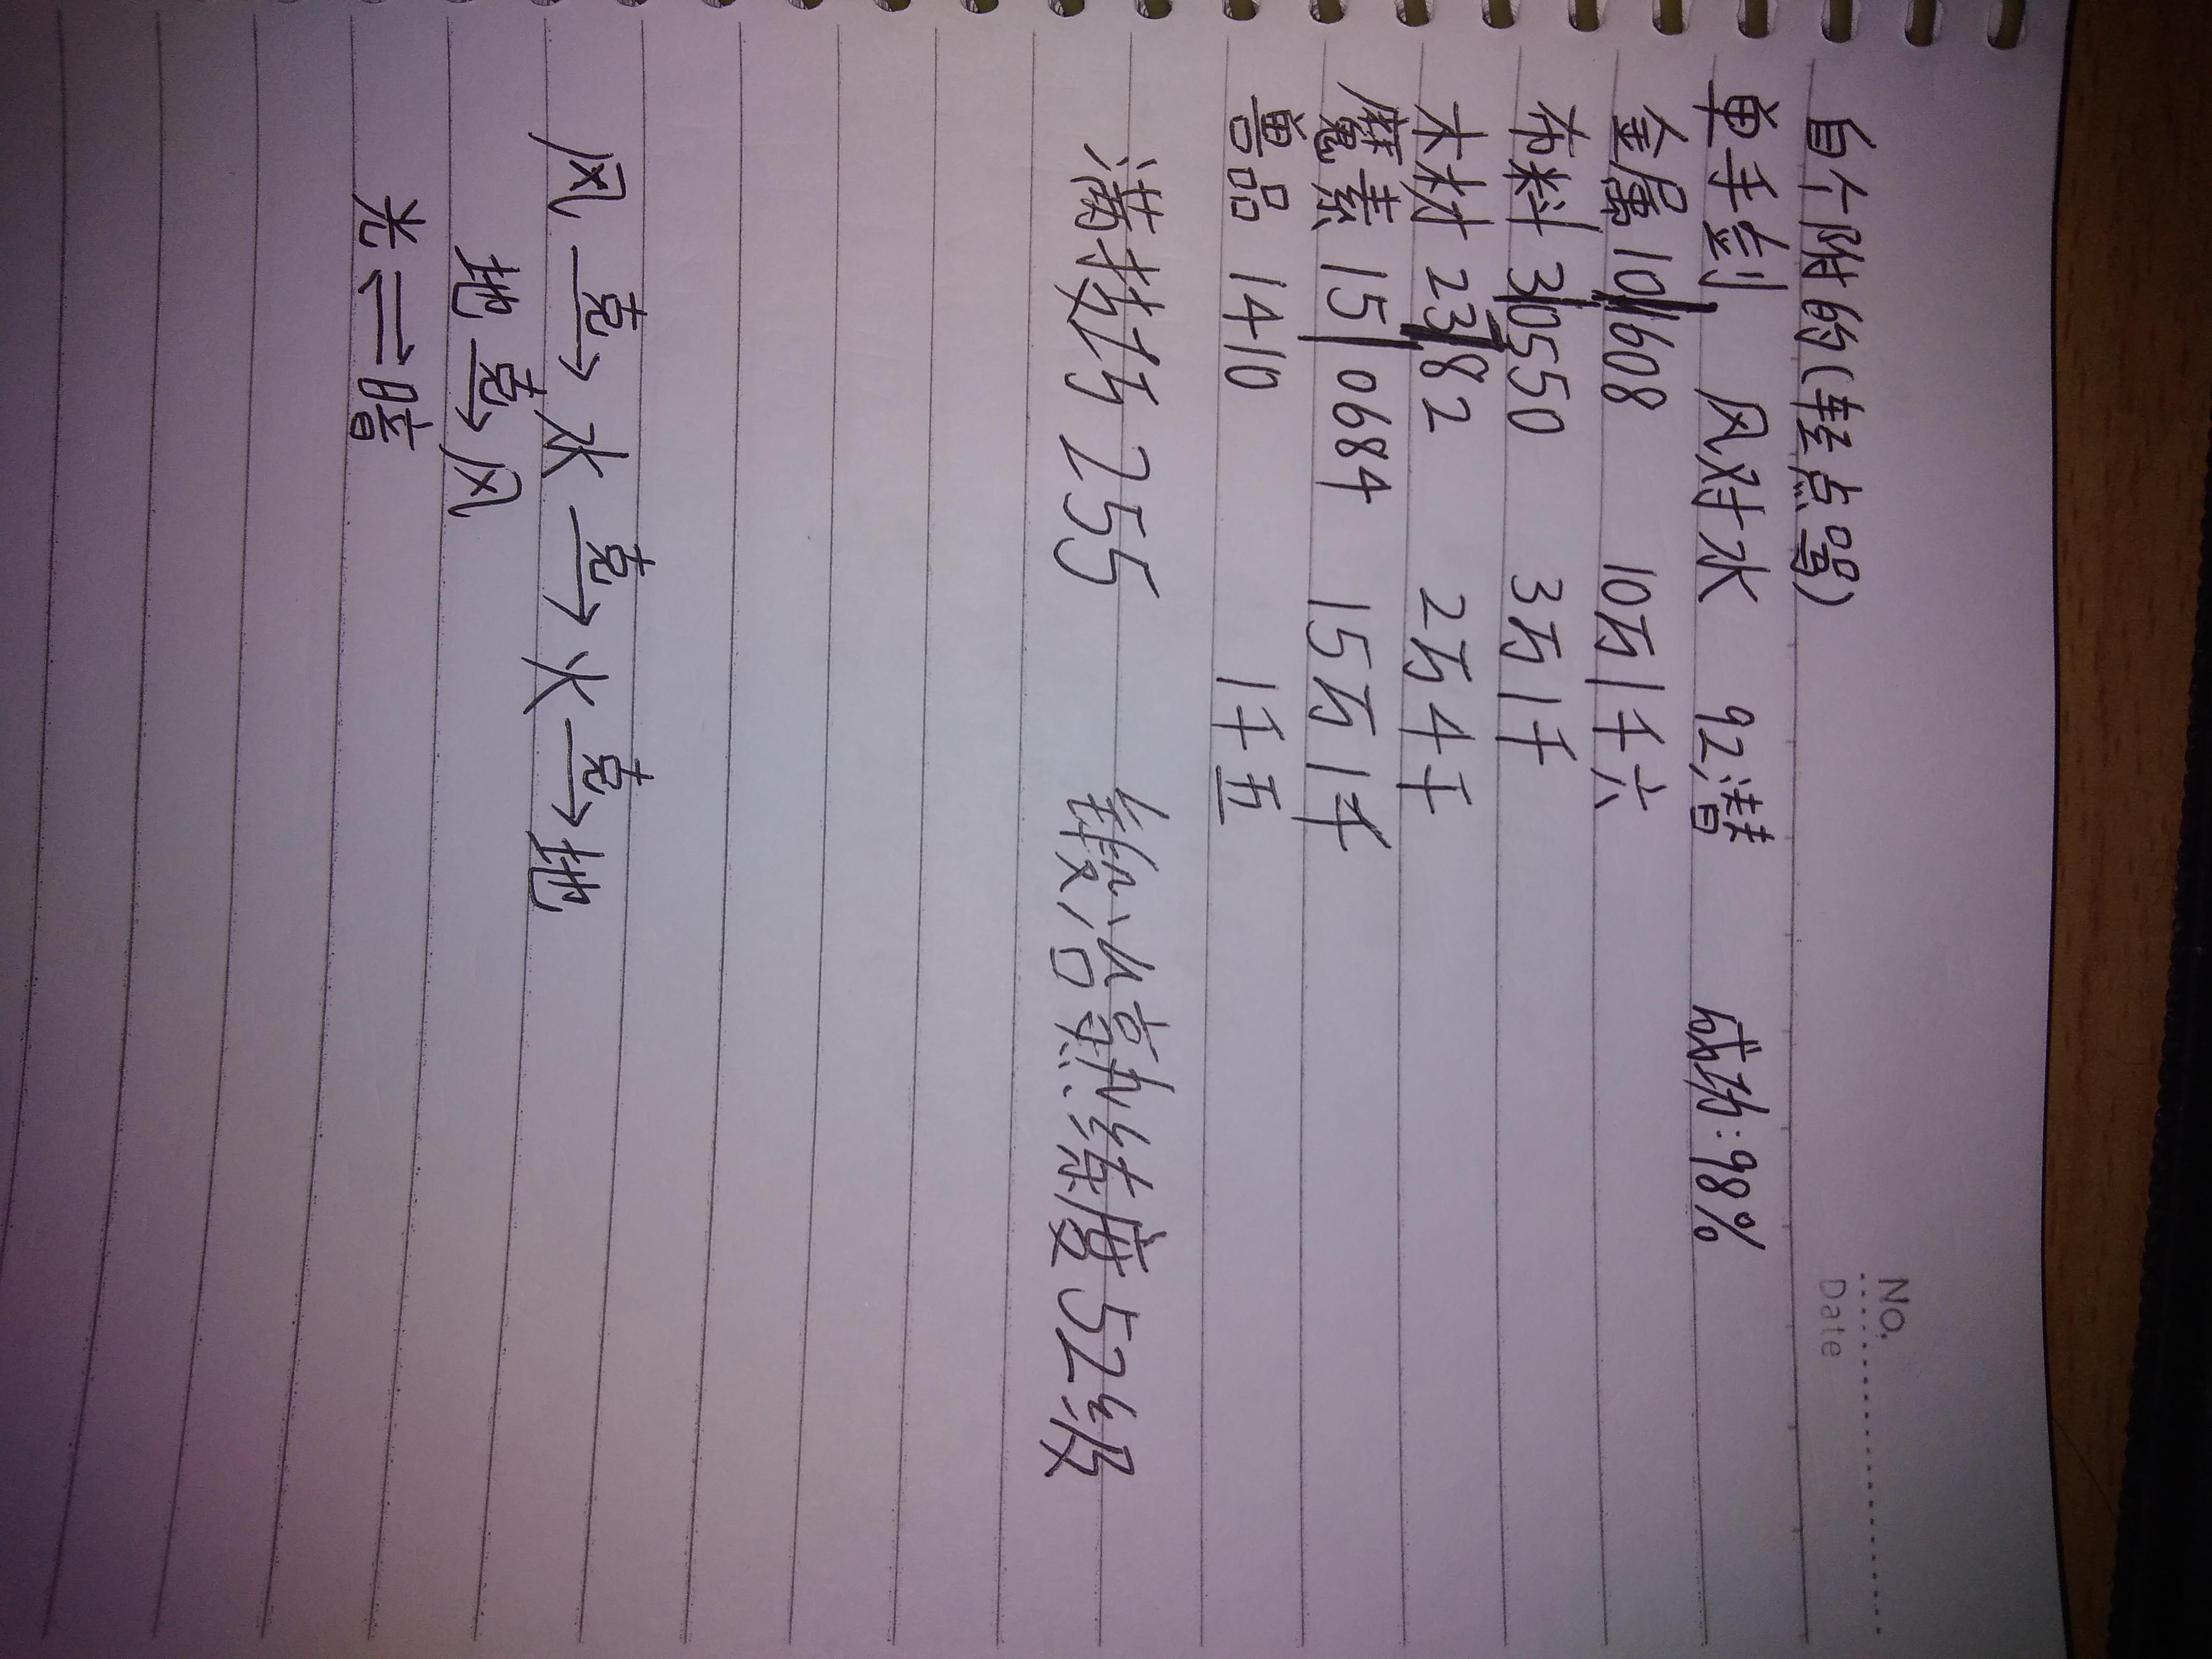 No.
Date
自个附的(转点号)
单手剑 风对水 92潜 成功:98%
金属 10|1608 10万1千六
布料 3|0550 3万1千
木材 23|82 2万4千
魔素 15|0684 15万1千
兽品 1410 1千五
满技巧 255 锻冶熟练度52级
风 克→ 水 克→ 火 克→ 地
地 克→ 风
光 ⇌ 暗